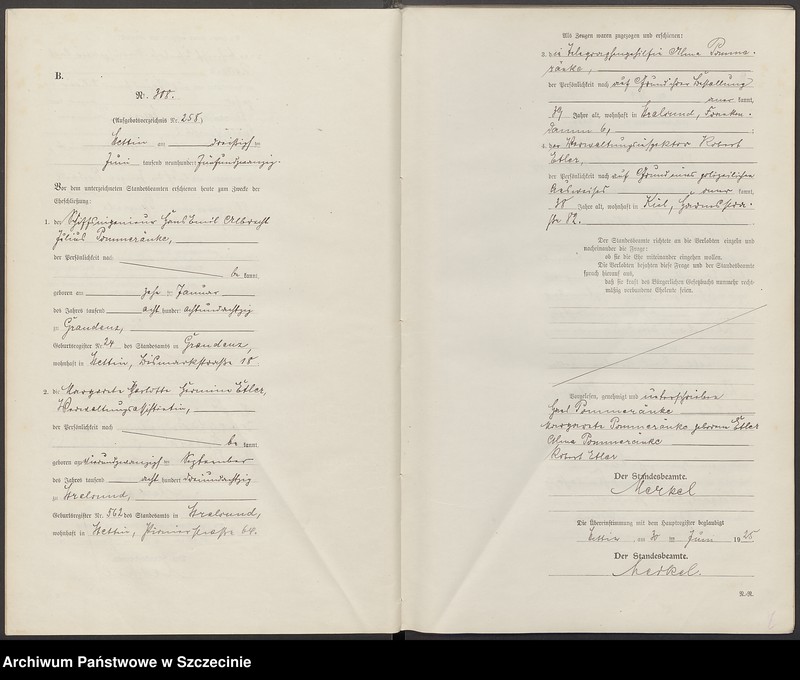 B.
Nr. 388.
(Aufgebotsverzeichnis Nr. 258.
Stettin am dreißigsten
Juni tausend neunhundert fünfundzwanzig.
Vor dem unterzeichneten Standesbeamten erschienen heute zum Zwecke der
Eheschließung:
1. der Schiffsingenieur Hans Emil Albrecht
Julius Pommeränke,
der Persönlichkeit nach
be kannt,
geboren am zehnten Januar
des Jahres tausend acht hundert achtundachtzig
zu Graudenz,
Geburtsregister Nr. 24 des Standesamts in Graudenz,
wohnhaft in Stettin, Bismarckstraße 18.
2. die Margarete Charlotte Hermine Etler,
Verwaltungsassistentin,
der Persönlichkeit nach
be kannt,
geboren am vierundzwanzigsten September
des Jahres tausend acht hundert dreiundachtzig
zu Stralsund,
Geburtsregister Nr. 562 des Standesamts in Stralsund,
wohnhaft in Stettin, Pionierstraße 64.
Als Zeugen waren zugezogen und erschienen:
3. die Telegraphengehilfin Alma Pomme-
ränke,
der Persönlichkeit nach auf Grund ihrer Bestallung
aner kannt,
39 Jahre alt, wohnhaft in Stralsund, Franken-
damm 6,
4. der Verwaltungsinspektor Robert
Etler,
der Persönlichkeit nach auf Grund eines polizeilichen
Ausweises aner kannt,
38 Jahre alt, wohnhaft in Kiel,
str 82.
Der Standesbeamte richtete an die Verlobten einzeln und
nacheinander die Frage:
ob sie die Ehe miteinander eingehen wollen.
Die Verlobten bejahten diese Frage und der Standesbeamte
sprach hierauf aus,
daß sie kraft des Bürgerlichen Gesetzbuchs nunmehr recht-
mäßig verbundene Eheleute seien.
Vorgelesen, genehmigt und unterschrieben
Hans Pommeränke
Margarete Pommeränke geborene Etler
Alma Pommeränke
Robert Etler
Der Standesbeamte.
Merkel
Die Übereinstimmung mit dem Hauptregister beglaubigt
Stettin am 30 ten Juni 1925
Der Standesbeamte.
Merkel.
N.-R.
Archiwum Państwowe w Szczecinie